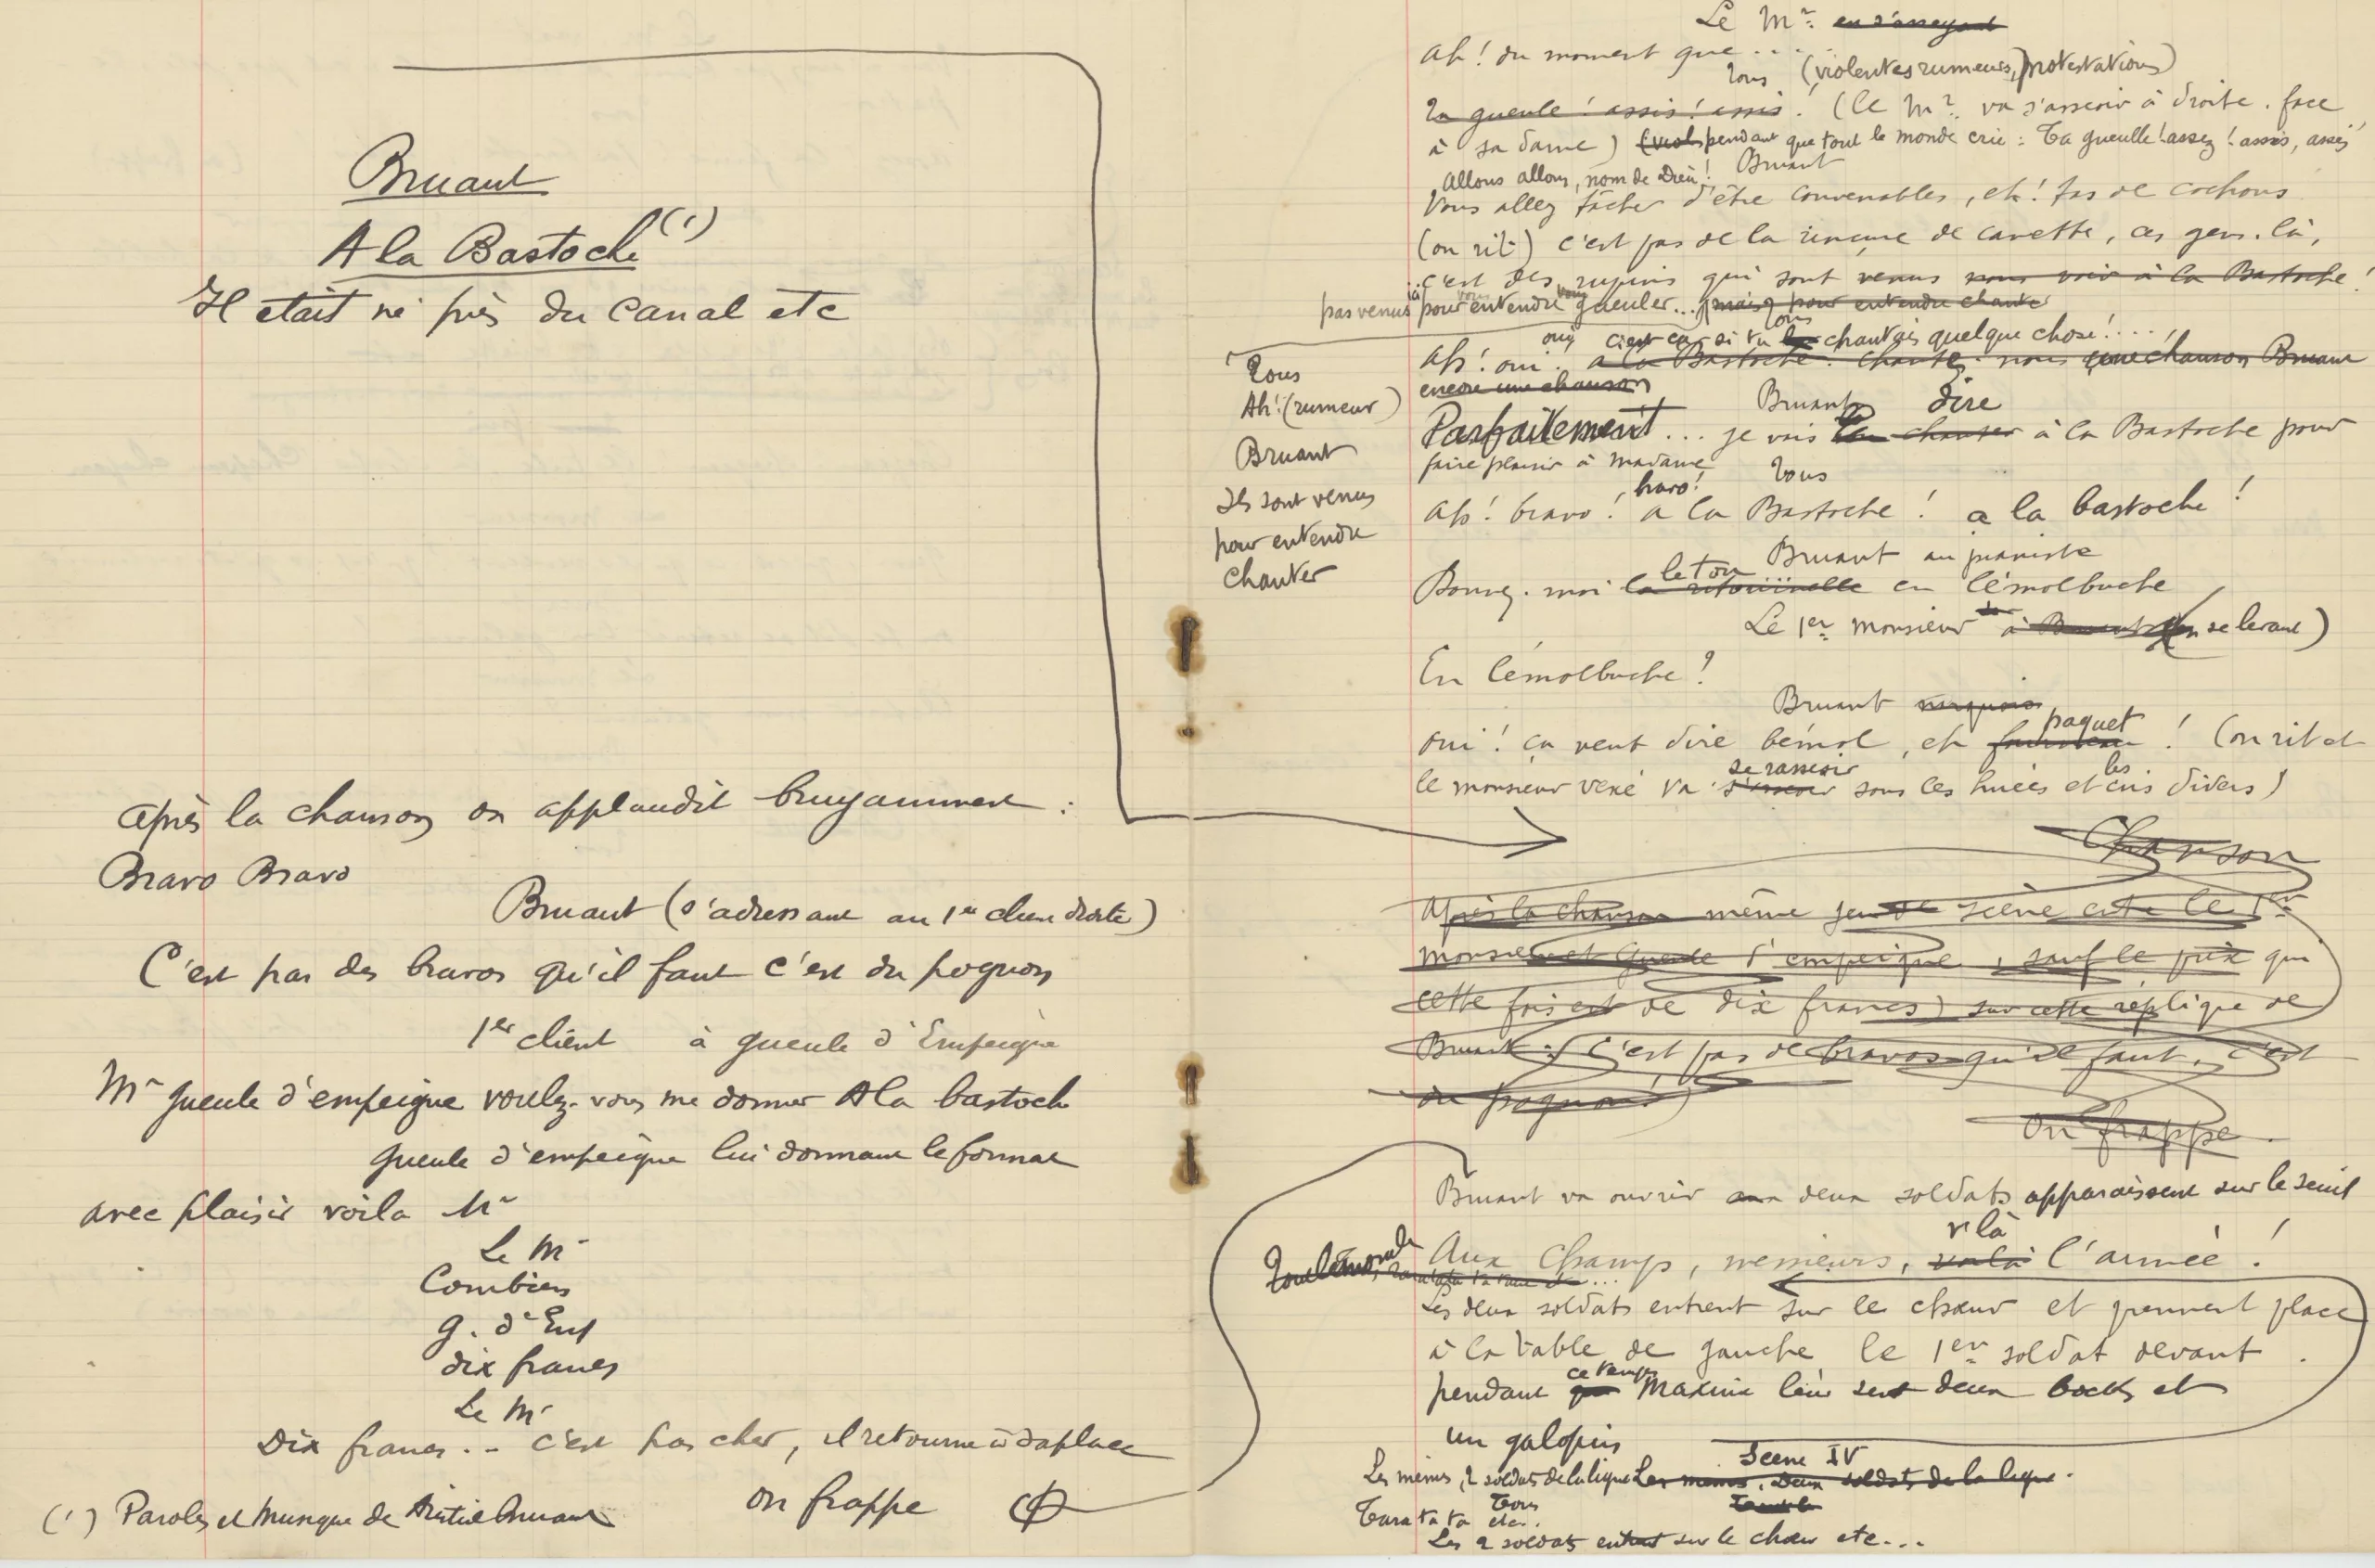 Bruant
A la Bastoche (1)
Il était né près du canal etc
après la chanson on applaudit bruyamment :
Bravo Bravo
Bruant (s'adressant au 1er client droite)
C'est pas des bravos qu'il faut c'est du pognon
1er client à gueule d'Empeigne
Mr gueule d'empeigne voulez-vous me donner A la bastoche
gueule d'empeigne lui donnant le format
avec plaisir voila Mr
Le Mr
Combien
g. d'Emp
dix francs
Le Mr
Dix francs .. c'est pas cher, il retourne à sa place
on frappe
(1) Paroles et Musique de Aristide Bruant
Le Mr. en s'asseyant
Ah! du moment que ...
Tous (violentes rumeurs, protestations)
Ta gueule! assis! assis! (le Mr. va s'asseoir à droite. face
à sa dame) pendant que tout le monde crie : Ta gueulle! assez! assis, assis
Allons allons, nom de Dieu! Bruant
Vous allez tâcher d'être convenables, eh! tas de cochons
(on rit) c'est pas de la rincure de canette, ces gens-là,
c'est des rupins qui sont venus nous voir à la Bastoche!
pas venus là pour vous entendre gueuler... mais pour entendre chanter
Tous
Ah! (rumeur)
Bruant
Ils sont venus
pour entendre
chanter
Tous
oui c'est ça si tu chantais quelque chose!...
Ah! oui! à la Bastoche. Chantez-nous une chanson Bruant
encore une chanson
Bruant
Parfaitement... je vais dire la chanter à la Bastoche pour
faire plaisir à Madame
Tous
Ah! bravo! bravo! a la Bastoche! a la bastoche!
Bruant au pianiste
Donnez-moi le ton la ritournelle en lémolbuche
Le 1er monsieur à Bruant (en se levant)
En lémolbuche?
Bruant narquois
oui! ça veut dire bémol, eh paquet! (on rit et
le monsieur vexé va se rasseoir s'asseoir sous les huées et les cris divers)
Chanson
Après la chanson même jeu de scène entre le 1er
monsieur et Gueule d'empeigne, sauf le prix qui
cette fois est de dix francs) sur cette réplique de
Bruant : (C'est pas de bravos qu'il faut, c'est
du pognon!)
On frappe.
Bruant va ouvrir deux soldats apparaissent sur le seuil
Tout le monde
Aux Champs, messieurs, v'là voilà l'armée!
Les deux soldats entrent sur le chœur et prennent place
à la table de gauche le 1er soldat devant.
pendant ce temps Maxime leur sert deux bocks et
un galopin
Scene IV
Les mêmes, 2 soldats de la ligne Les mêmes, Deux soldats de la ligne.
Tous
Tara ta ta etc..
Les 2 soldats entrent sur le chœur etc...